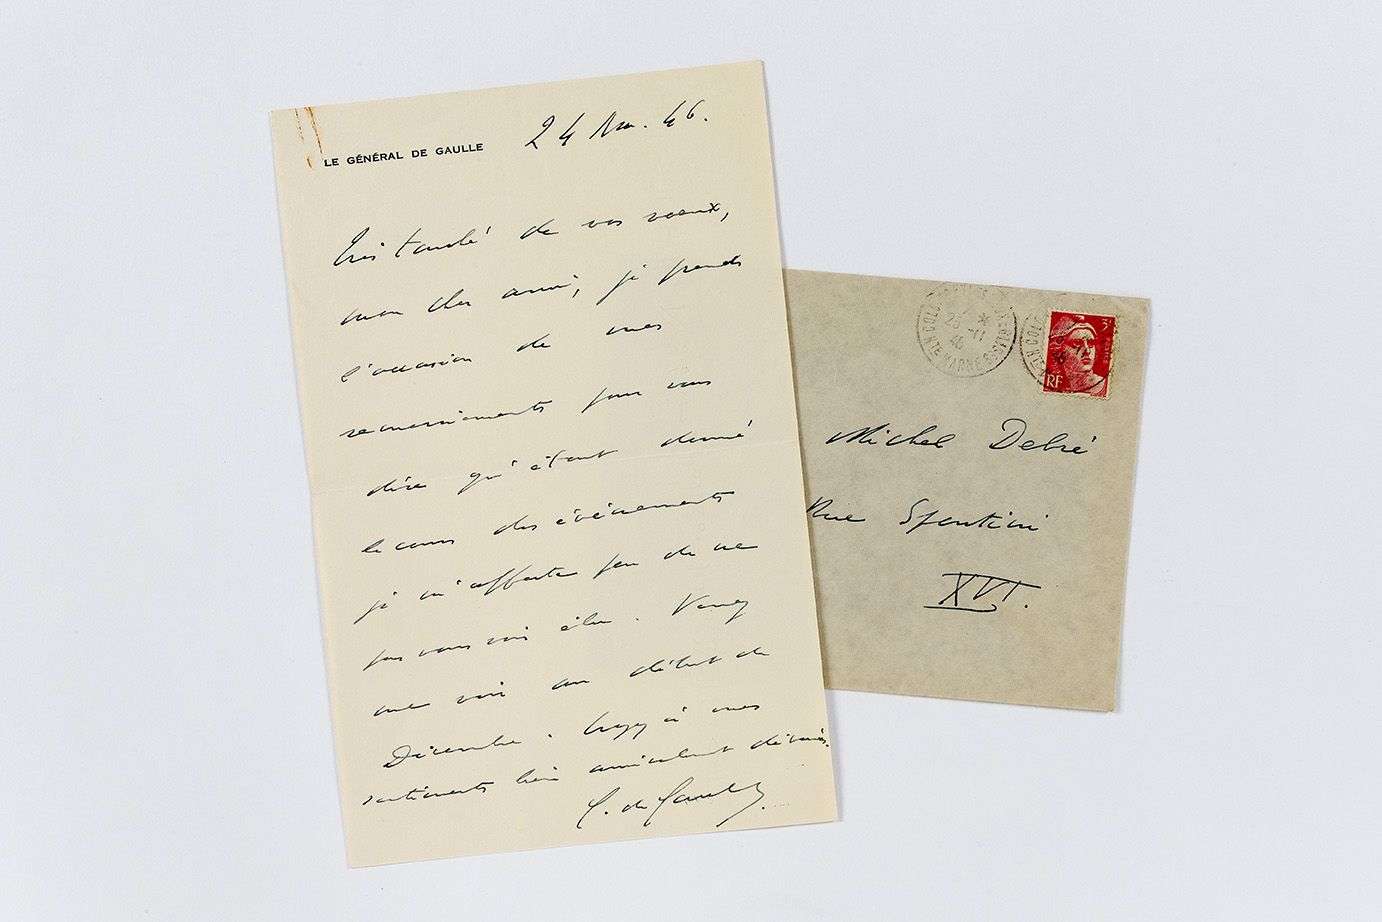 LE GÉNÉRAL DE GAULLE
24 Nov. 46.
Très touché de vos voeux,
mon cher ami, je prends
l'occasion de mes
remerciements pour vous
dire qu'étant donné
le cours des événements
je m'afflige peu de ne
pas vous voir élu. Venez
me voir au début de
Décembre. Croyez à mes
sentiments bien amicalement dévoués.
C. de Gaulle
3F
RF
Michel Debré
Rue Spontini
XVI.